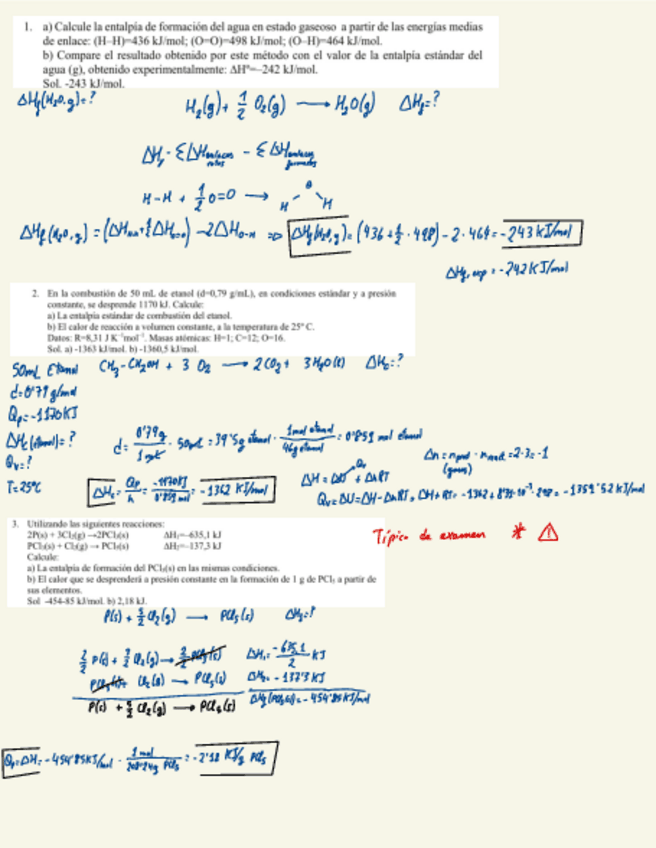 1. a) Calcule la entalpía de formación del agua en estado gaseoso a partir de las energías medias
de enlace: (H-H)=436 kJ/mol; (O=O)=498 kJ/mol; (O-H)=464 kJ/mol.
b) Compare el resultado obtenido por este método con el valor de la entalpía estándar del
agua (g), obtenido experimentalmente: ΔHº=-242 kJ/mol.
Sol. -243 kJ/mol.
ΔHf(H2O,g)=? H2(g) + 1/2 O2(g) ⟶ H2O(g) ΔHf=?
ΔHf = ΣΔHenlaces rotos - ΣΔHenlaces formados
H-H + 1/2 O=O ⟶ H O H
ΔHf(H2O,g) = (ΔHH-H + 1/2 ΔHO=O) - 2ΔHO-H => ΔHf(H2O,g) = (436 + 1/2 · 498) - 2 · 464 = -243 KJ/mol
ΔHf, exp = -242 KJ/mol
2. En la combustión de 50 mL de etanol (d=0,79 g/mL), en condiciones estándar y a presión
constante, se desprende 1170 kJ. Calcule:
a) La entalpía estándar de combustión del etanol.
b) El calor de reacción a volumen constante, a la temperatura de 25º C.
Datos: R=8,31 J K⁻¹mol⁻¹. Masas atómicas: H=1; C=12; O=16.
Sol. a) -1363 kJ/mol. b) -1360,5 kJ/mol.
50mL Etanol CH3-CH2OH + 3 O2 ⟶ 2CO2 + 3H2O(l) ΔHc=?
d=0'79 g/ml
Qp=-1170KJ
ΔHc(etanol)=?
Qv=?
T=25ºC
d= 0'79g/1mL · 50mL = 39'5g etanol · 1mol etanol/46g etanol = 0'859 mol etanol
ΔHc = Qp/n = -1170KJ/0'859 mol = -1362 KJ/mol
Δn = nprod - nreact = 2-3 = -1
(gases)
ΔH = ΔU + ΔnRT
Qv=ΔU=ΔH-ΔnRT = ΔH+RT = -1362 + 8'31·10⁻³·298 = -1359'52 KJ/mol
3. Utilizando las siguientes reacciones:
2P(s) + 3Cl2(g) →2PCl3(s) ΔH1=-635,1 kJ
PCl3(s) + Cl2(g) → PCl5(s) ΔH2=-137,3 kJ
Calcule:
a) La entalpía de formación del PCl5(s) en las mismas condiciones.
b) El calor que se desprenderá a presión constante en la formación de 1 g de PCl5 a partir de
sus elementos.
Sol -454,85 kJ/mol. b) 2,18 kJ.
Típico de examen * !
P(s) + 5/2 Cl2(g) ⟶ PCl5(s) ΔHf=?
2/2 P(s) + 3/2 Cl2(g) ⟶ 2/2 PCl3(s) ΔH1= -635,1/2 KJ
PCl3(s) + Cl2(g) ⟶ PCl5(s) ΔH2= -137'3 KJ
P(s) + 5/2 Cl2(g) ⟶ PCl5(s) ΔHf(PCl5(s))= -454'85KJ/mol
Qp=ΔH= -454'85KJ/mol · 1mol/208'24g PCl5 = -2'18 KJ/g PCl5